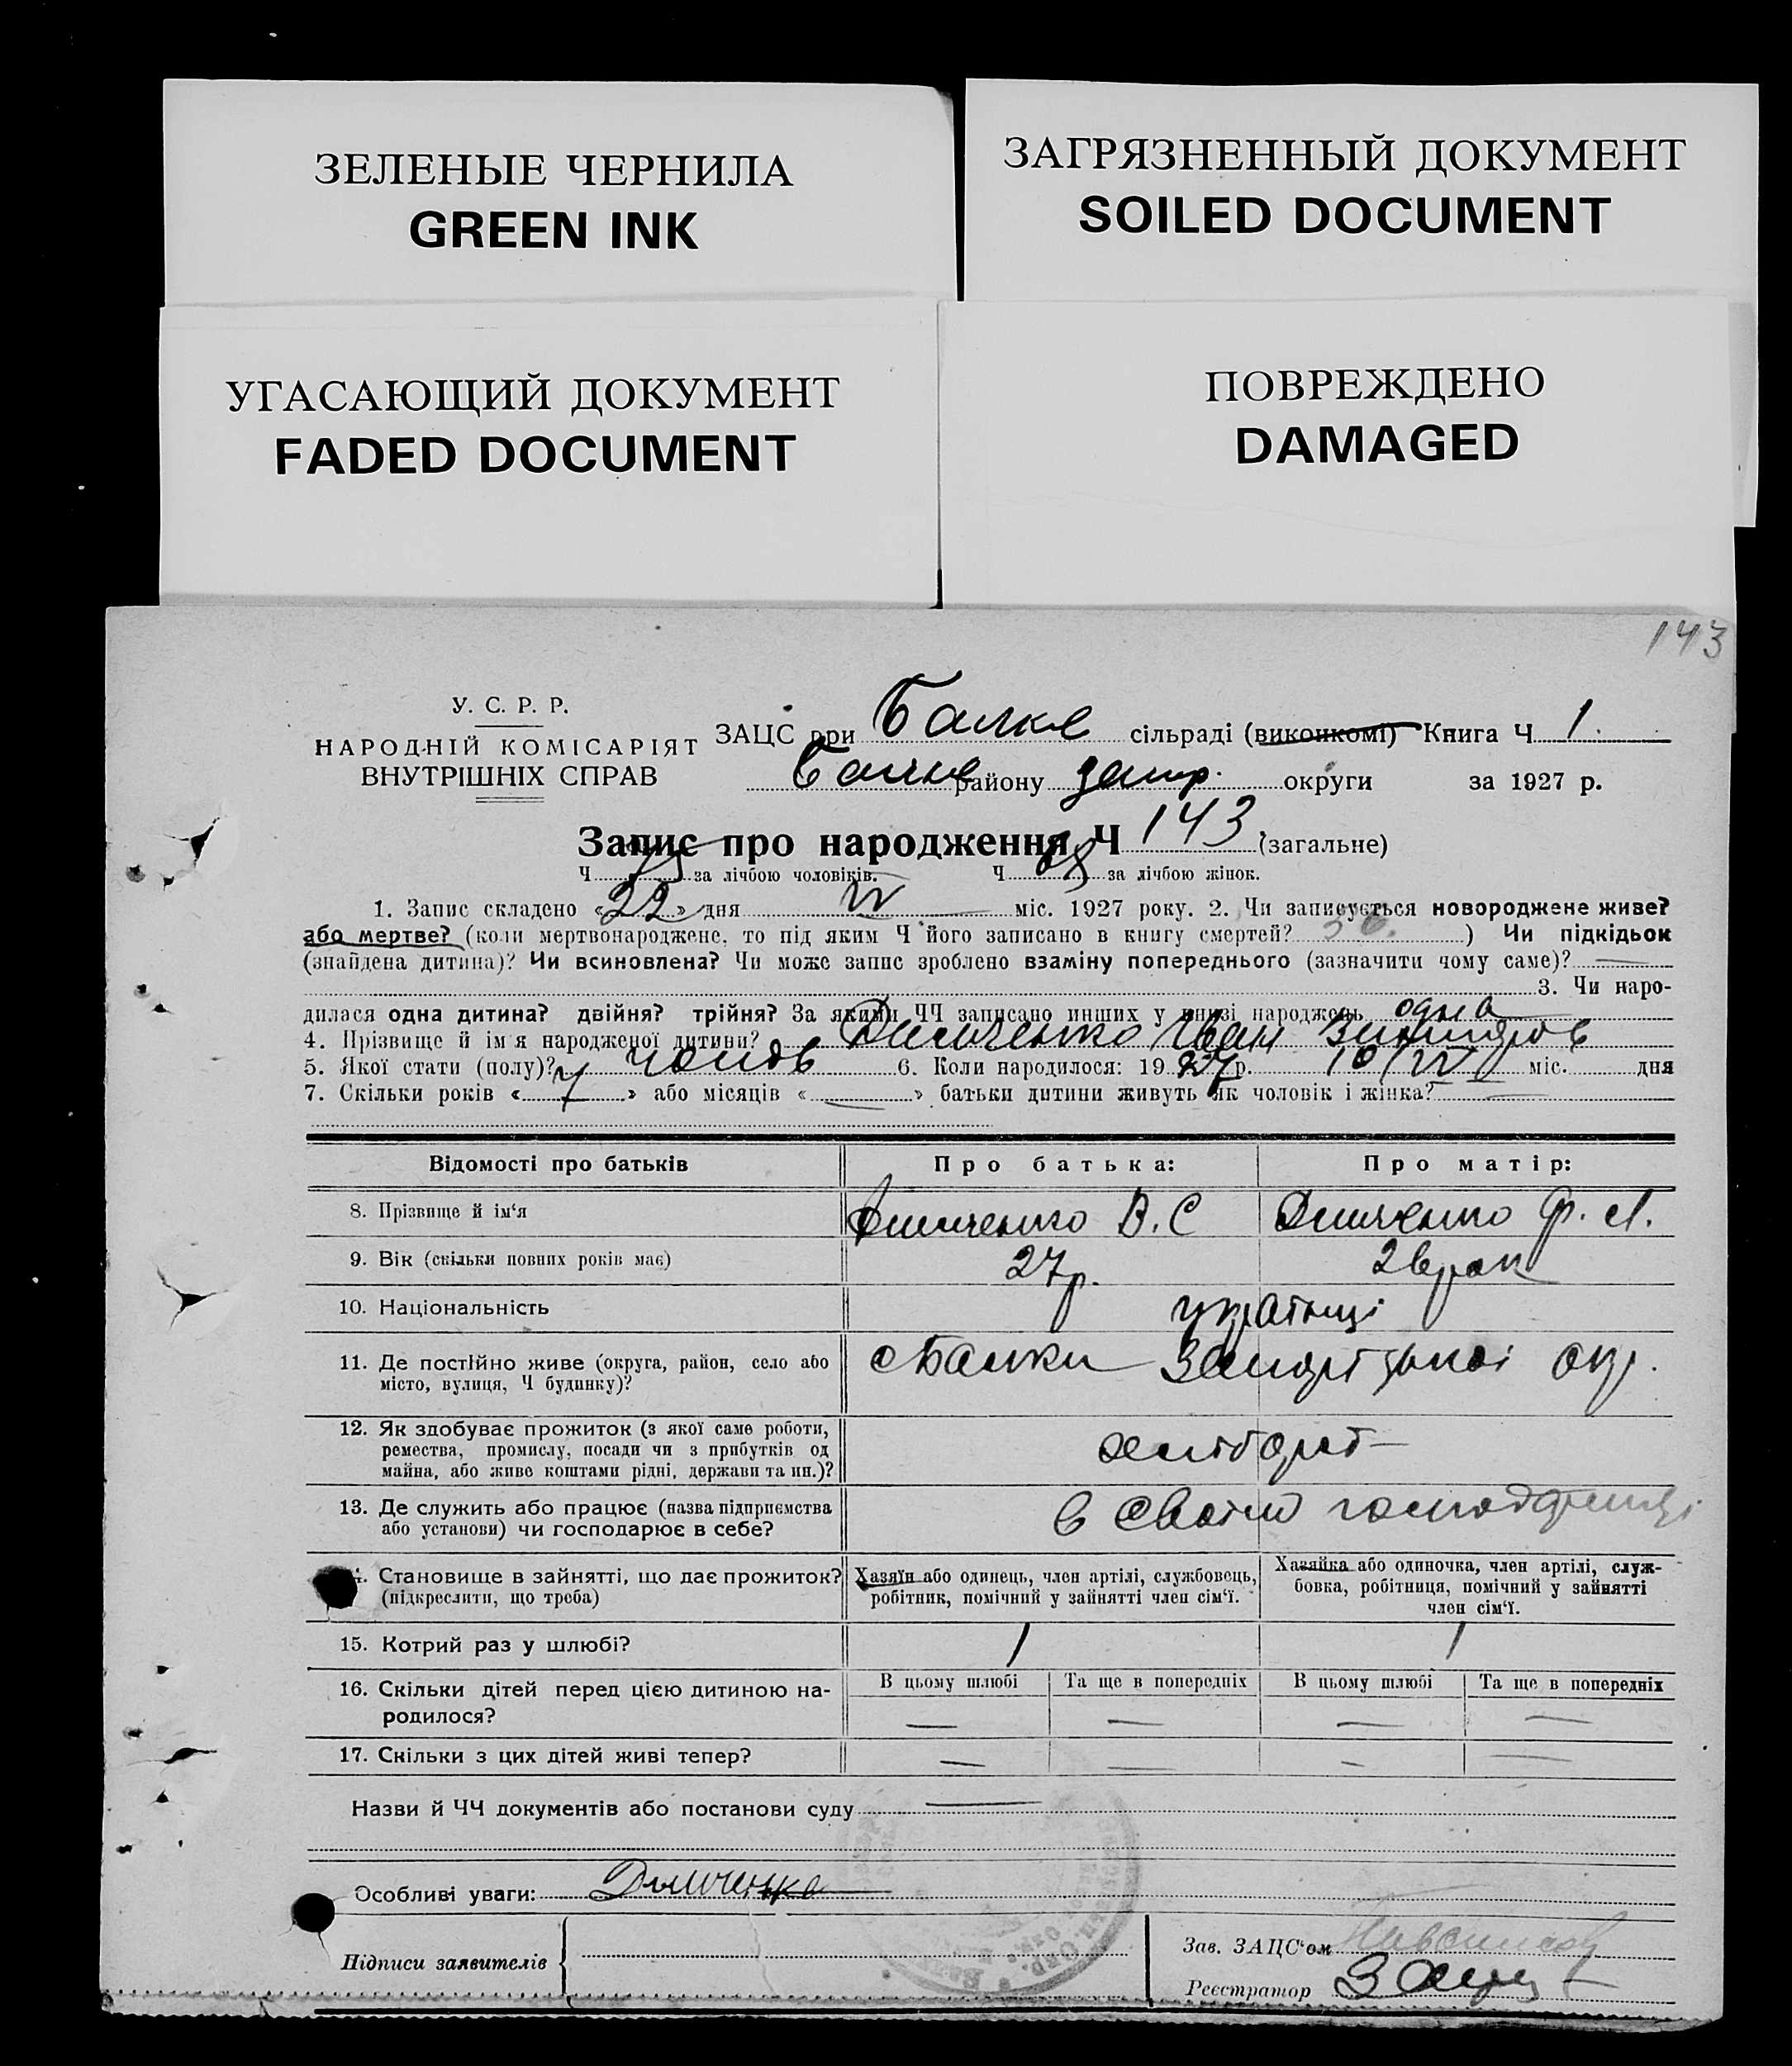 ЗЕЛЕНЫЕ ЧЕРНИЛА
GREEN INK
ЗАГРЯЗНЕННЫЙ ДОКУМЕНТ
SOILED DOCUMENT
УГАСАЮЩИЙ ДОКУМЕНТ
FADED DOCUMENT
ПОВРЕЖДЕНО
DAMAGED
143
У. С. Р. Р.
НАРОДНІЙ КОМІСАРІЯТ
ВНУТРІШНІХ СПРАВ
ЗАЦС при Балке сільраді (виконкомі) Книга Ч 1.
району Запор. округи за 1927 р.
Запис про народження Ч 143 (загальне)
Ч 75 за лічбою чоловіків. Ч 68 за лічбою жінок.
1. Запис складено «22» дня міс. 1927 року. 2. Чи записується новороджене живе?
або мертве? (коли мертвонароджене, то під яким Ч його записано в книгу смертей? ) Чи підкідьок
(знайдена дитина)? Чи всиновлена? Чи може запис зроблено взаміну попереднього (зазначити чому саме)?
3. Чи наро-
дилася одна дитина? двійня? трійня? За якими ЧЧ записано инших у книзі народжень одна
4. Прізвище й ім'я народженої дитини? Іван
5. Якої стати (полу)? чолов 6. Коли народилося: 1927 р. 10 міс. дня
7. Скільки років « » або місяців « » батьки дитини живуть як чоловік і жінка?
Відомості про батьків Про батька: Про матір:
8. Прізвище й ім'я В. С Ф. Л.
9. Вік (скільки повних років має) 27 р.
10. Національність українці
11. Де постійно живе (округа, район, село або
місто, вулиця, Ч будинку)? с Балки Запорізької окр.
12. Як здобуває прожиток (з якої саме роботи,
ремества, промислу, посади чи з прибутків од
майна, або живе коштами рідні, держави та ин.)? хлібороб
13. Де служить або працює (назва підприємства
або установи) чи господарює в себе? в своїм господарстві
Становище в зайнятті, що дає прожиток?
(підкреслити, що треба)
Хазяїн або одинець, член артілі, службовець,
робітник, помічний у зайнятті член сім'ї.
Хазяйка або одиночка, член артілі, служ-
бовка, робітниця, помічний у зайнятті
член сім'ї.
15. Котрий раз у шлюбі? 1 1
16. Скільки дітей перед цією дитиною на-
родилося?
В цьому шлюбі Та ще в попередніх В цьому шлюбі Та ще в попередніх
17. Скільки з цих дітей живі тепер?
Назви й ЧЧ документів або постанови суду
Особливі уваги:
Підписи заявителів
Зав. ЗАЦС'ом
Реєстратор